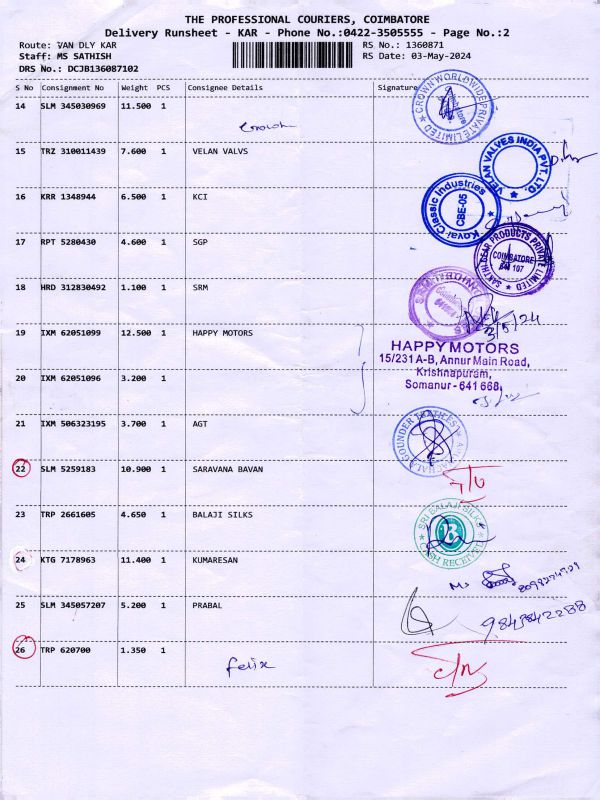 THE PROFESSIONAL COURIERS, COIMBATORE
Delivery Runsheet - KAR - Phone No.:0422-3505555 - Page No.:2
Route: VAN DLY KAR RS No.: 1360871
Staff: MS SATHISH RS Date: 03-May-2024
DRS No.: DCJB136087102
S No Consignment No Weight PCS Consignee Details Signature
14 SLM 345030969 11.500 1
CROWN WORLDWIDE PRIVATE LIMITED
15 TRZ 310011439 7.600 1 VELAN VALVS
VELAN VALVES INDIA PVT. LTD.
16 KRR 1348944 6.500 1 KCI
Kovai Classic Industries
CBE-05
17 RPT 5280430 4.600 1 SGP
SANTHI GEAR PRODUCTS PRIVATE LIMITED
COIMBATORE
641 107
18 HRD 312830492 1.100 1 SRM
3/5/24
19 IXM 62051099 12.500 1 HAPPY MOTORS
HAPPY MOTORS
15/231 A-B, Annur Main Road,
Krishnapuram,
Somanur - 641 668.
20 IXM 62051096 3.200 1
21 IXM 506323195 3.700 1 AGT
22 SLM 5259183 10.900 1 SARAVANA BAVAN
23 TRP 2661605 4.650 1 BALAJI SILKS
SRI BALAJI SILKS
CASH RECEIVED
24 KTG 7178963 11.400 1 KUMARESAN
25 SLM 345057207 5.200 1 PRABAL
9843842288
26 TRP 620700 1.350 1
felix